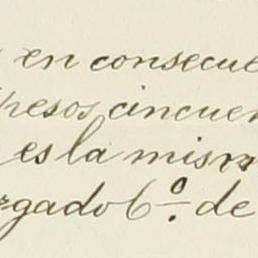 en consecue
pesos cincuen
es la mism
rgado 6º. de